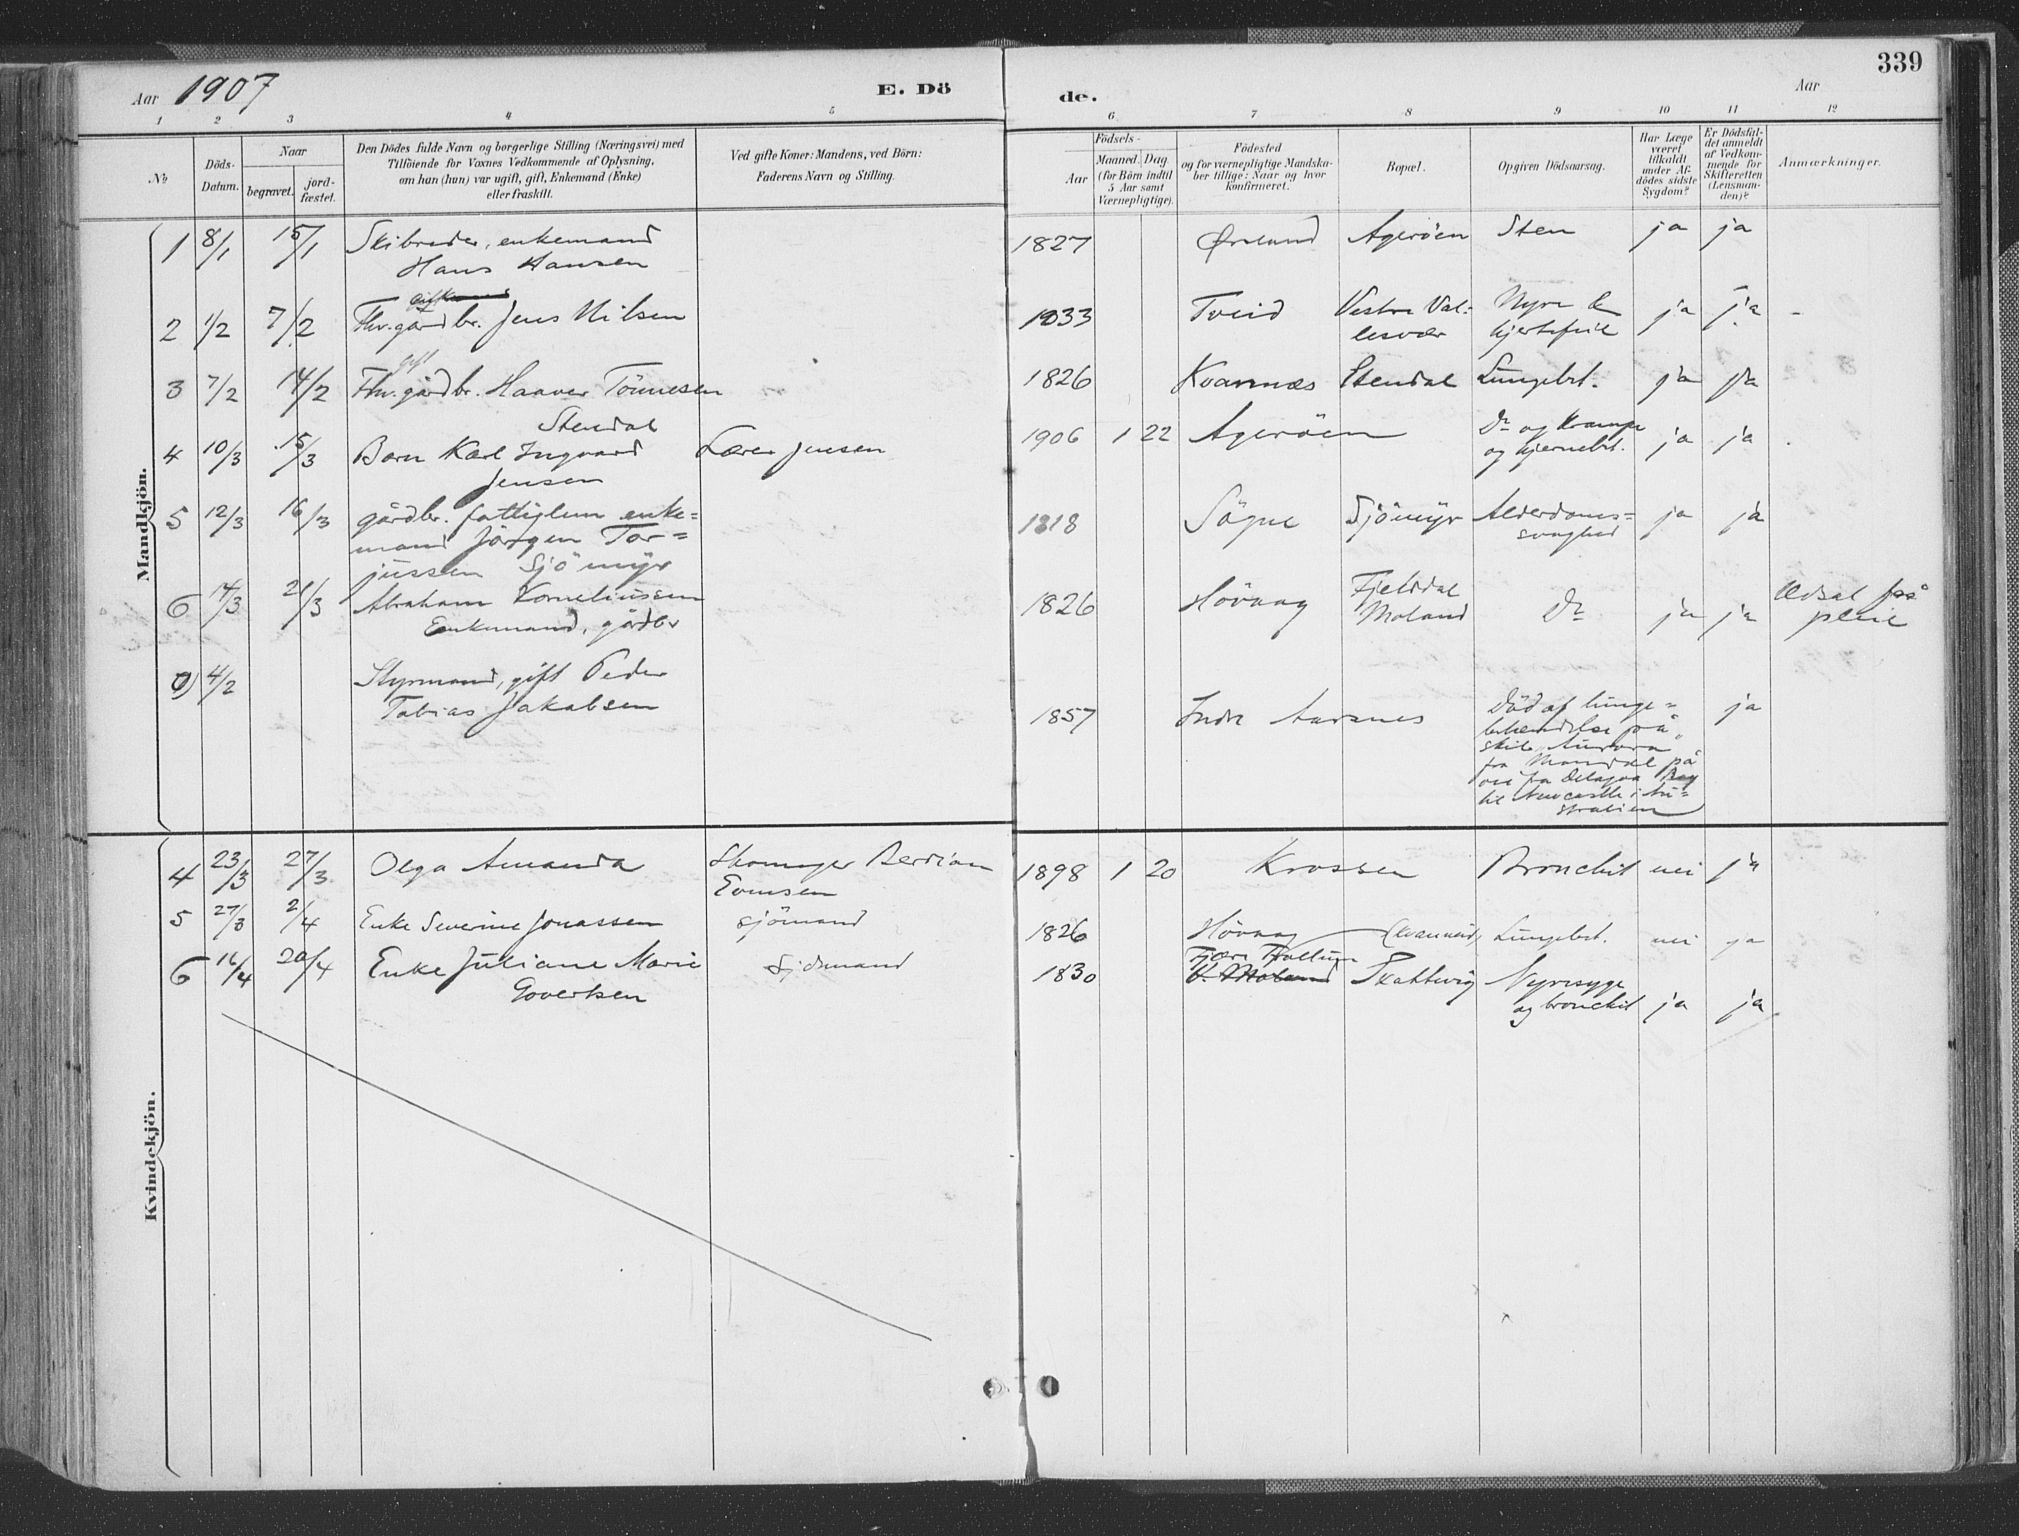 339
Aar 1907
E. Dö
de.
Aar
1 2 3 4 5 6 7 8 9 10 11 12
No
Döds-
Datum.
Naar
begravet.
jord-
fæstet.
Den Dödes fulde Navn og borgerlige Stilling (Næringsvei) med
Tilföiende for Voxnes Vedkommende af Oplysning,
om han (hun) var ugift, gift, Enkemand (Enke)
eller fraskilt.
Ved gifte Koner: Mandens, ved Börn:
Faderens Navn og Stilling.
Födsels-
Aar
Maaned. Dag
(for Börn indtil
5 Aar samt
Værnepligtige).
Födested
og for værnepligtige Mandska-
ber tillige: Naar og hvor
konfirmeret.
Bopæl.
Opgiven Dödsaarsag.
Har Læge
været
tilkaldt
under Af-
dödes sidste
Sygdom?
Er Dödsfal-
det anmeldt
af Vedkom-
mende for
Skifteretten
(Lensman-
den)?
Anmærkninger.
Mandkjön.
1 8/1 15/1 Skibreder, enkemand 1827 Agerøen Sten ja ja
Hans Hansen
2 1/2 7/2 Fhv. gårdbr. Jens Nilsen 1833 Tveid Vestre Val- Nyre &
lesvær hjertefeil ja ja
gift
3 7/2 14/2 Fhv. gårdbr. Haaver Tönnesen 1826 Kvarenæs Stendal Lungebet. ja ja
Stendal
4 10/3 15/3 Barn Karl Ingvard Lærer Jensen 1906 1 22 Agerøen Do og Krampe
Jensen og hjernebet. ja ja
5 12/3 16/3 gårdbr. fattiglem enke= 1818 Sögne Sjömyr Alderdoms= ja ja
mand Jörgen Tor= svaghed
jussen Sjömyr
6 14/3 21/3 Abraham Korneliussen 1826 Hövaag Fjeldal Do ja ja Udsat på
Enkemand, gårdbr Moland pleie
4/2 Styrmand, gift Peder
Tobias Jakobsen 1857 Indre Aarsnes Död af lunge= ja
betændelse på
skib "Aurora"
fra Mandal på
vei fra Delagoa Bay
til Newcastle i Au=
stralien
Kvindekjön.
4 23/3 27/3 Olga Amanda Skomager Berdian 1898 1 20 Krossen Bronchit nei ja
Evensen
5 27/3 2/4 Enke Severine Jonassen sjömand 1826 Hövaag Lungebet. nei ja
6 16/4 20/4 Enke Juliane Marie Sjömand 1830 V. Moland Skottevig Nyresyge
Govertsen og bronchit ja ja